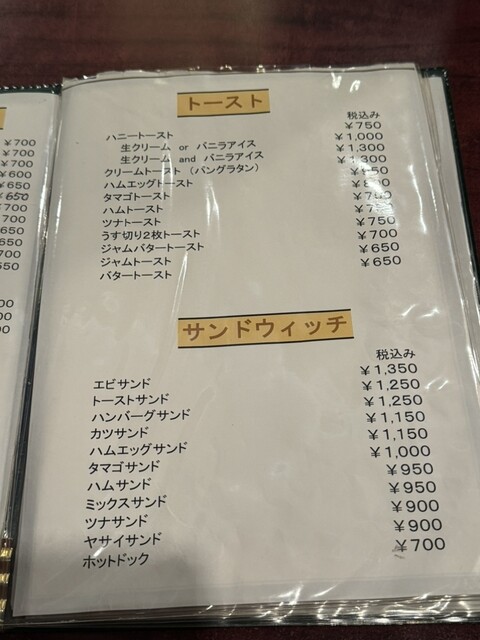 トースト
税込み
ハニートースト ￥750
生クリーム or バニラアイス ￥1,000
生クリーム and バニラアイス ￥1,300
クリームトースト (パングラタン) ￥1,300
ハムエッグトースト
タマゴトースト
ハムトースト
ツナトースト
うす切り2枚トースト ￥750
ジャムバタートースト ￥700
ジャムトースト ￥650
バタートースト ￥650
サンドウィッチ
税込み
エビサンド ￥1,350
トーストサンド ￥1,250
ハンバーグサンド ￥1,250
カツサンド ￥1,150
ハムエッグサンド ￥1,150
タマゴサンド ￥1,000
ハムサンド ￥950
ミックスサンド ￥950
ツナサンド ￥900
ヤサイサンド ￥900
ホットドック ￥700
￥700
￥700
￥700
￥600
￥650